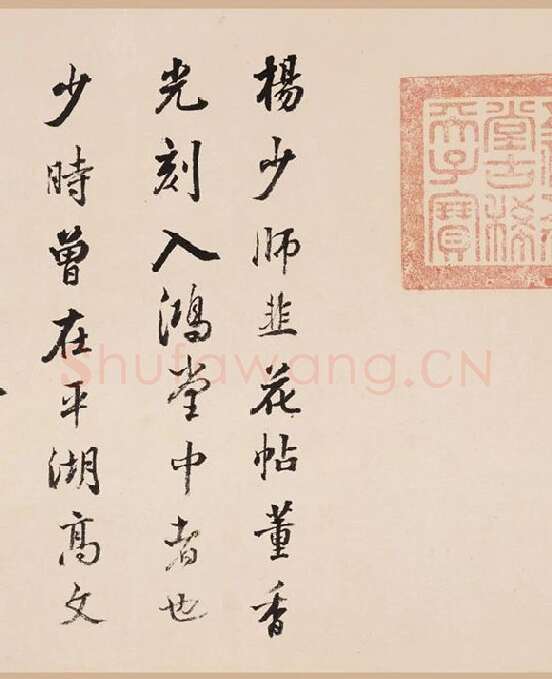 堂古稀
天子寶
楊少師韭花帖董香
光刻入鴻堂中者也
少時曾在平湖高文
Shufawang.CN